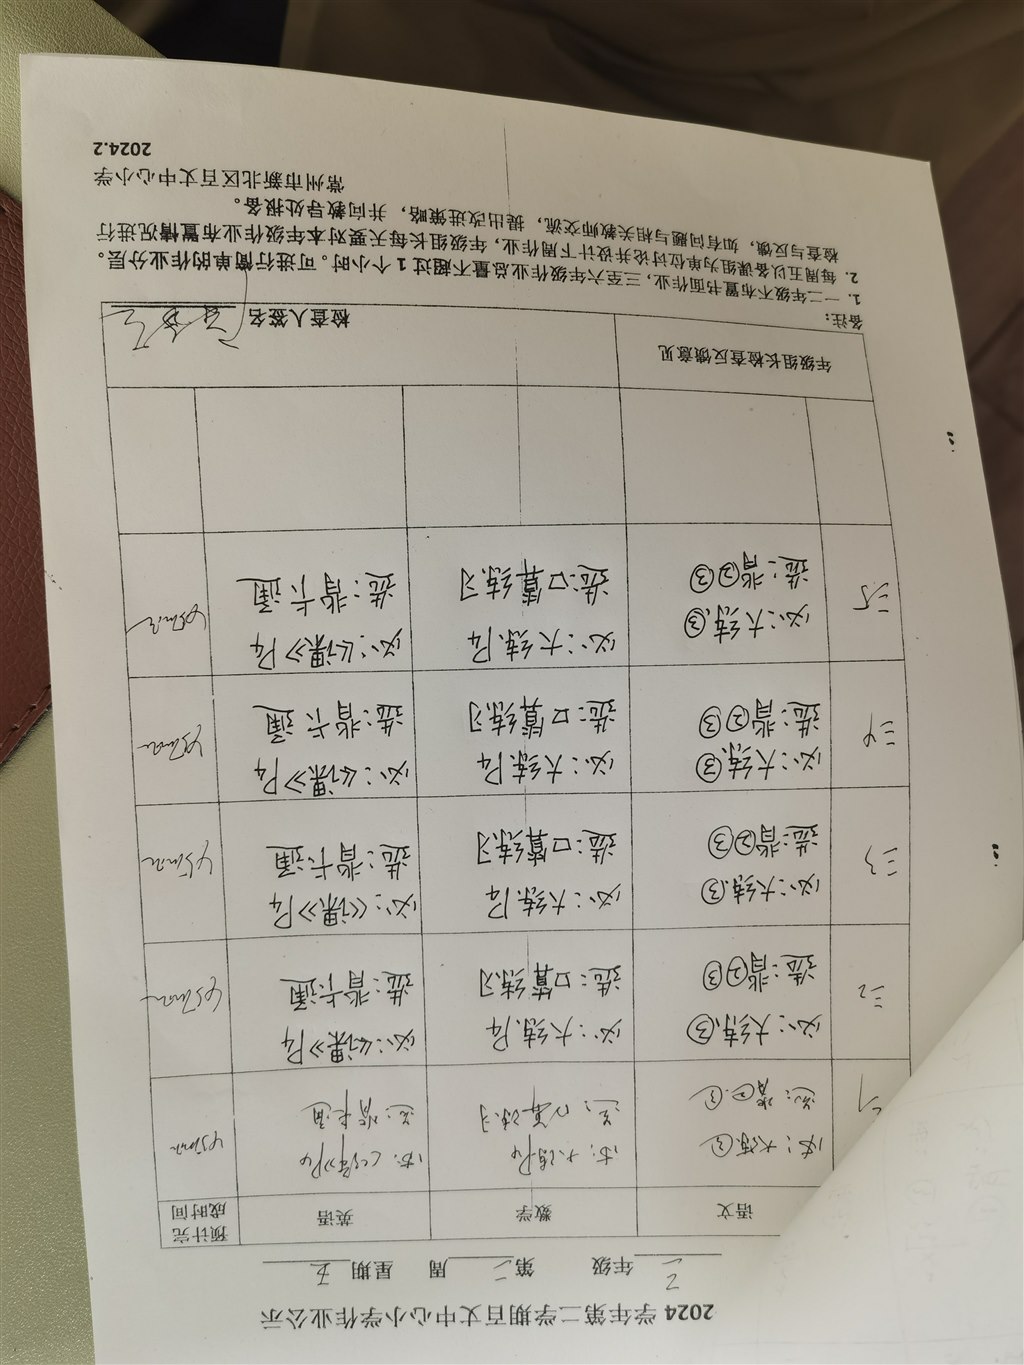 2024 学年第二学期百丈中心小学作业公示
三 年级 第 二 周 星期 五
语文 数学 英语 预计完成时间
三1
必：大练③
选：背②③
必：大练P4
选：口算练习
必：《课》P4
选：背卡通
45min
三2
必：大练③
选：背②③
必：大练P4
选：口算练习
必：《课》P4
选：背卡通
45min
三3
必：大练③
选：背②③
必：大练P4
选：口算练习
必：《课》P4
选：背卡通
45min
三4
必：大练③
选：背②③
必：大练P4
选：口算练习
必：《课》P4
选：背卡通
45min
三5
必：大练③
选：背②③
必：大练P4
选：口算练习
必：《课》P4
选：背卡通
45min
年级组长检查反馈意见 检查人签名
备注：
1. 一二年级不布置书面作业，三至六年级作业总量不超过 1 个小时。可进行简单的作业分层。
2. 每周五以备课组为单位讨论并设计下周作业，年级组长每天要对本年级作业布置情况进行
检查与反馈，如有问题与相关教师交流，提出改进策略，并向教导处报备。
常州市新北区百丈中心小学
2024.2